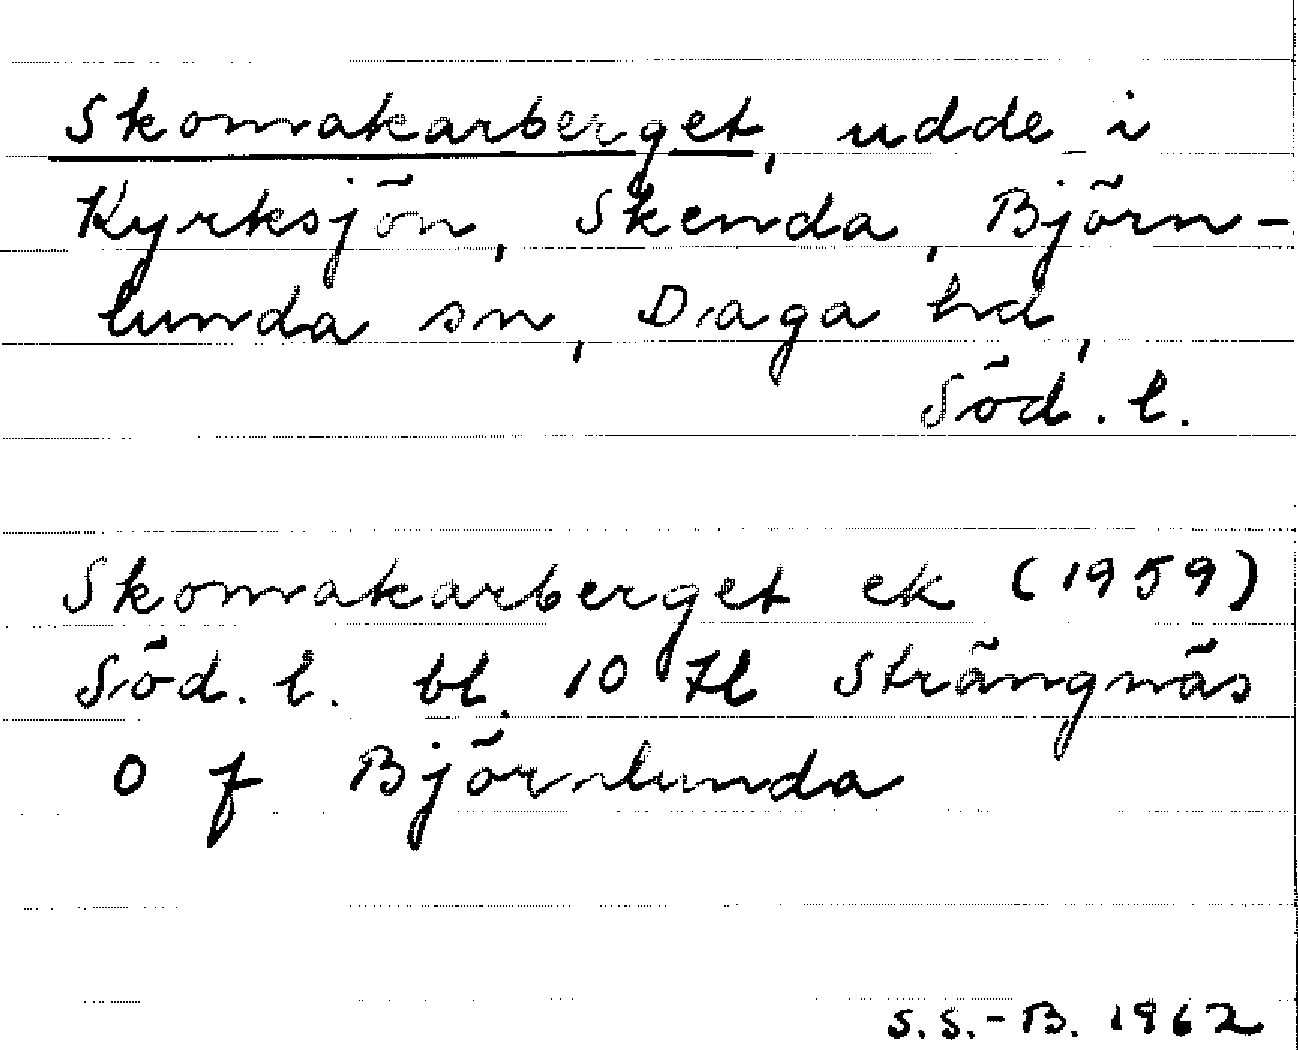 Skomakarberget, udde i
Kyrksjön, Skenda, Björn-
lunda sn, Daga hd,
Söd. l.
Skomakarberget ek (1959)
Söd. l. bl. 10 Strängnäs
O f Björnlunda
S.S.-B. 1962